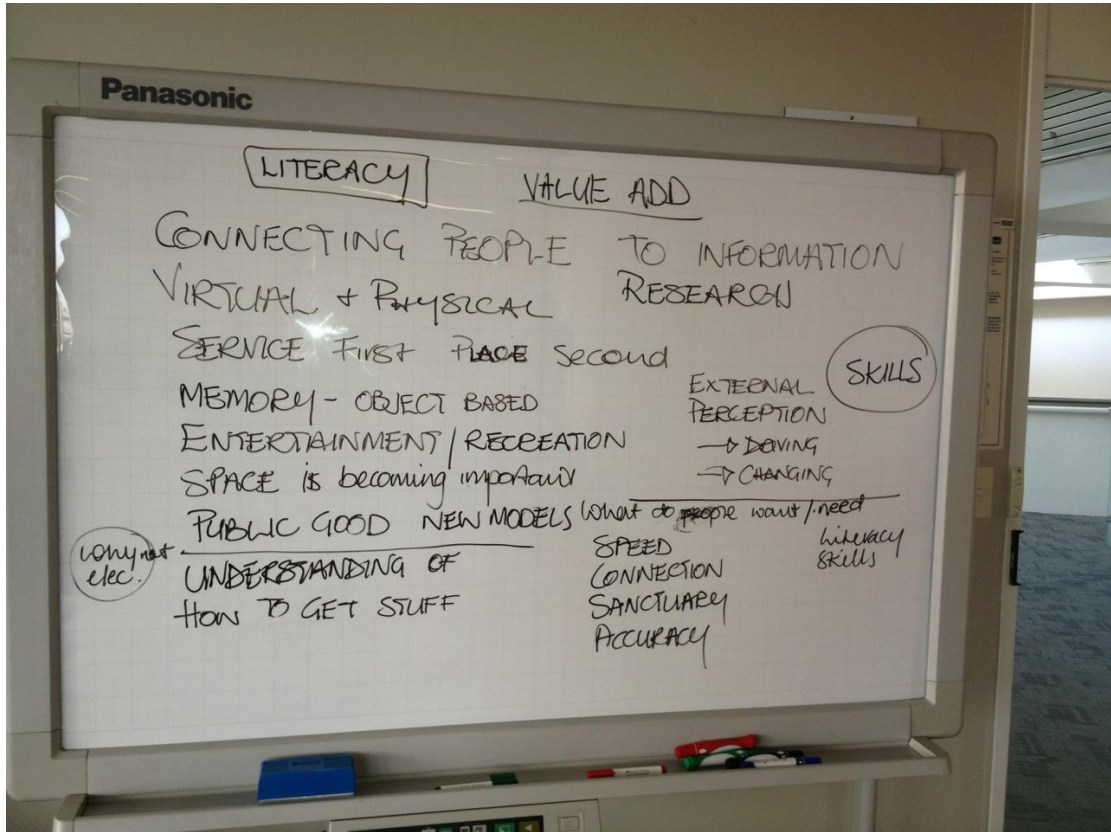 Panasonic
LITERACY VALUE ADD
CONNECTING PEOPLE TO INFORMATION
VIRTUAL + PHYSICAL RESEARCH
SERVICE First PLACE Second
MEMORY - OBJECT BASED
ENTERTAINMENT / RECREATION
SPACE is becoming important
PUBLIC GOOD NEW MODELS
why not elec.
UNDERSTANDING OF
HOW TO GET STUFF
EXTERNAL
PERCEPTION
→
→ CHANGING
SKILLS
What do people want / need
SPEED
CONNECTION
SANCTUARY
ACCURACY
Literacy
Skills